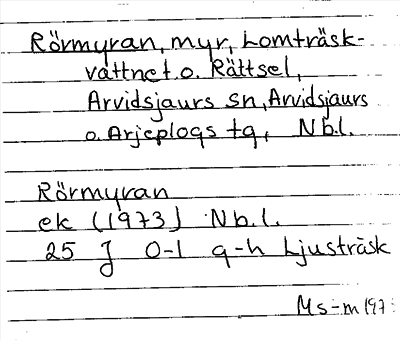 Rörmyran, myr, Lomträsk-
vattnet o. Rättsel,
Arvidsjaurs sn, Arvidsjaurs
o. Arjeplogs tg, Nb.l.
Rörmyran
ek (1973) Nb.l.
25 J 0-1 g-h Ljusträsk
Ms-m 197